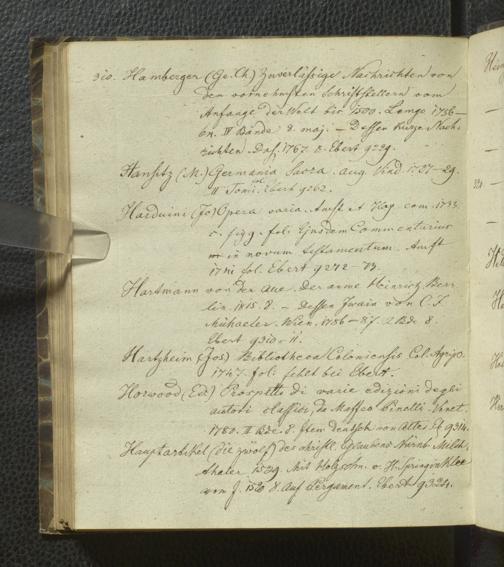 310. Hamberger (Ge. Ch) Zuverlässige Nachrichten von
den vornehmsten Schriftstellern vom
Anfange der Welt bis 1500. Lemgo 1756–
60. IV Bände 8. maj. – Dessen kurze Nach-
richten. Das. 1767. 8. Ebert 9229.
Hansitz (M.) Germania Sacra. Aug. Vind. 1727–29.
II Tomi. Ebert 9262.
Harduini (Jo) Opera varia. Amst. et Hag. com. 1733.
c. figg. fol. Ejusdem Commentarius
in novum testamentum. Amst.
1741 fol. Ebert 9272–73.
Hartmann von der Aue. Der arme Heinrich. Ber-
lin. 1815. 8. – Dessen Iwain von C. F.
Michaeler. Wien. 1786–87. 2 Bde 8.
Ebert 9310–11.
Hartzheim (Jos) Bibliotheca Coloniensis. Col. Agrip.
1747. fol. fehlt bei Ebert.
Horwood (Ed.) Prospetto di varie edizioni degli
autori classici, da Maffeo Pinelli. Venet.
1780. II Bde. 8. Item deutsch von Alter. Eb. 9314.
Hauptartikel (die zwölf) des christl. Glaubens Nürnb. Milch-
thaler 1539. Mit Holzschn. v. H. Springinklee
vom J. 1520 8. Auf Pergament. Ebert 9324.